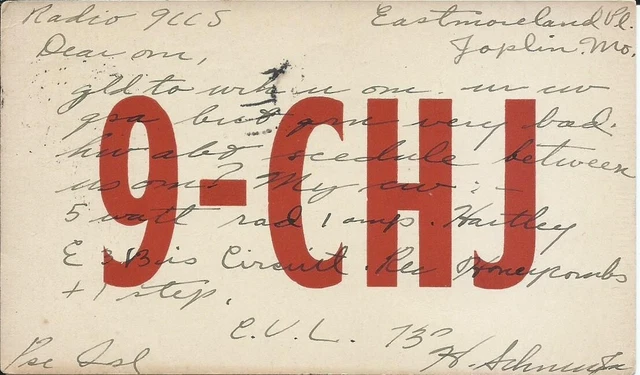 Radio 9CCS Eastmoreland Pl.
Joplin. Mo.
Dear om,
gld to wrk u om. ur cw
qsa but qrn very bad.
hw abt scedule between
us om? My cw :-
5 watt rad 1 amp. Hartley
Circuit. Rec Honeycombs
+ 1 step.
C.V.L. 73s
Pse Qsl H.
9-CHJ